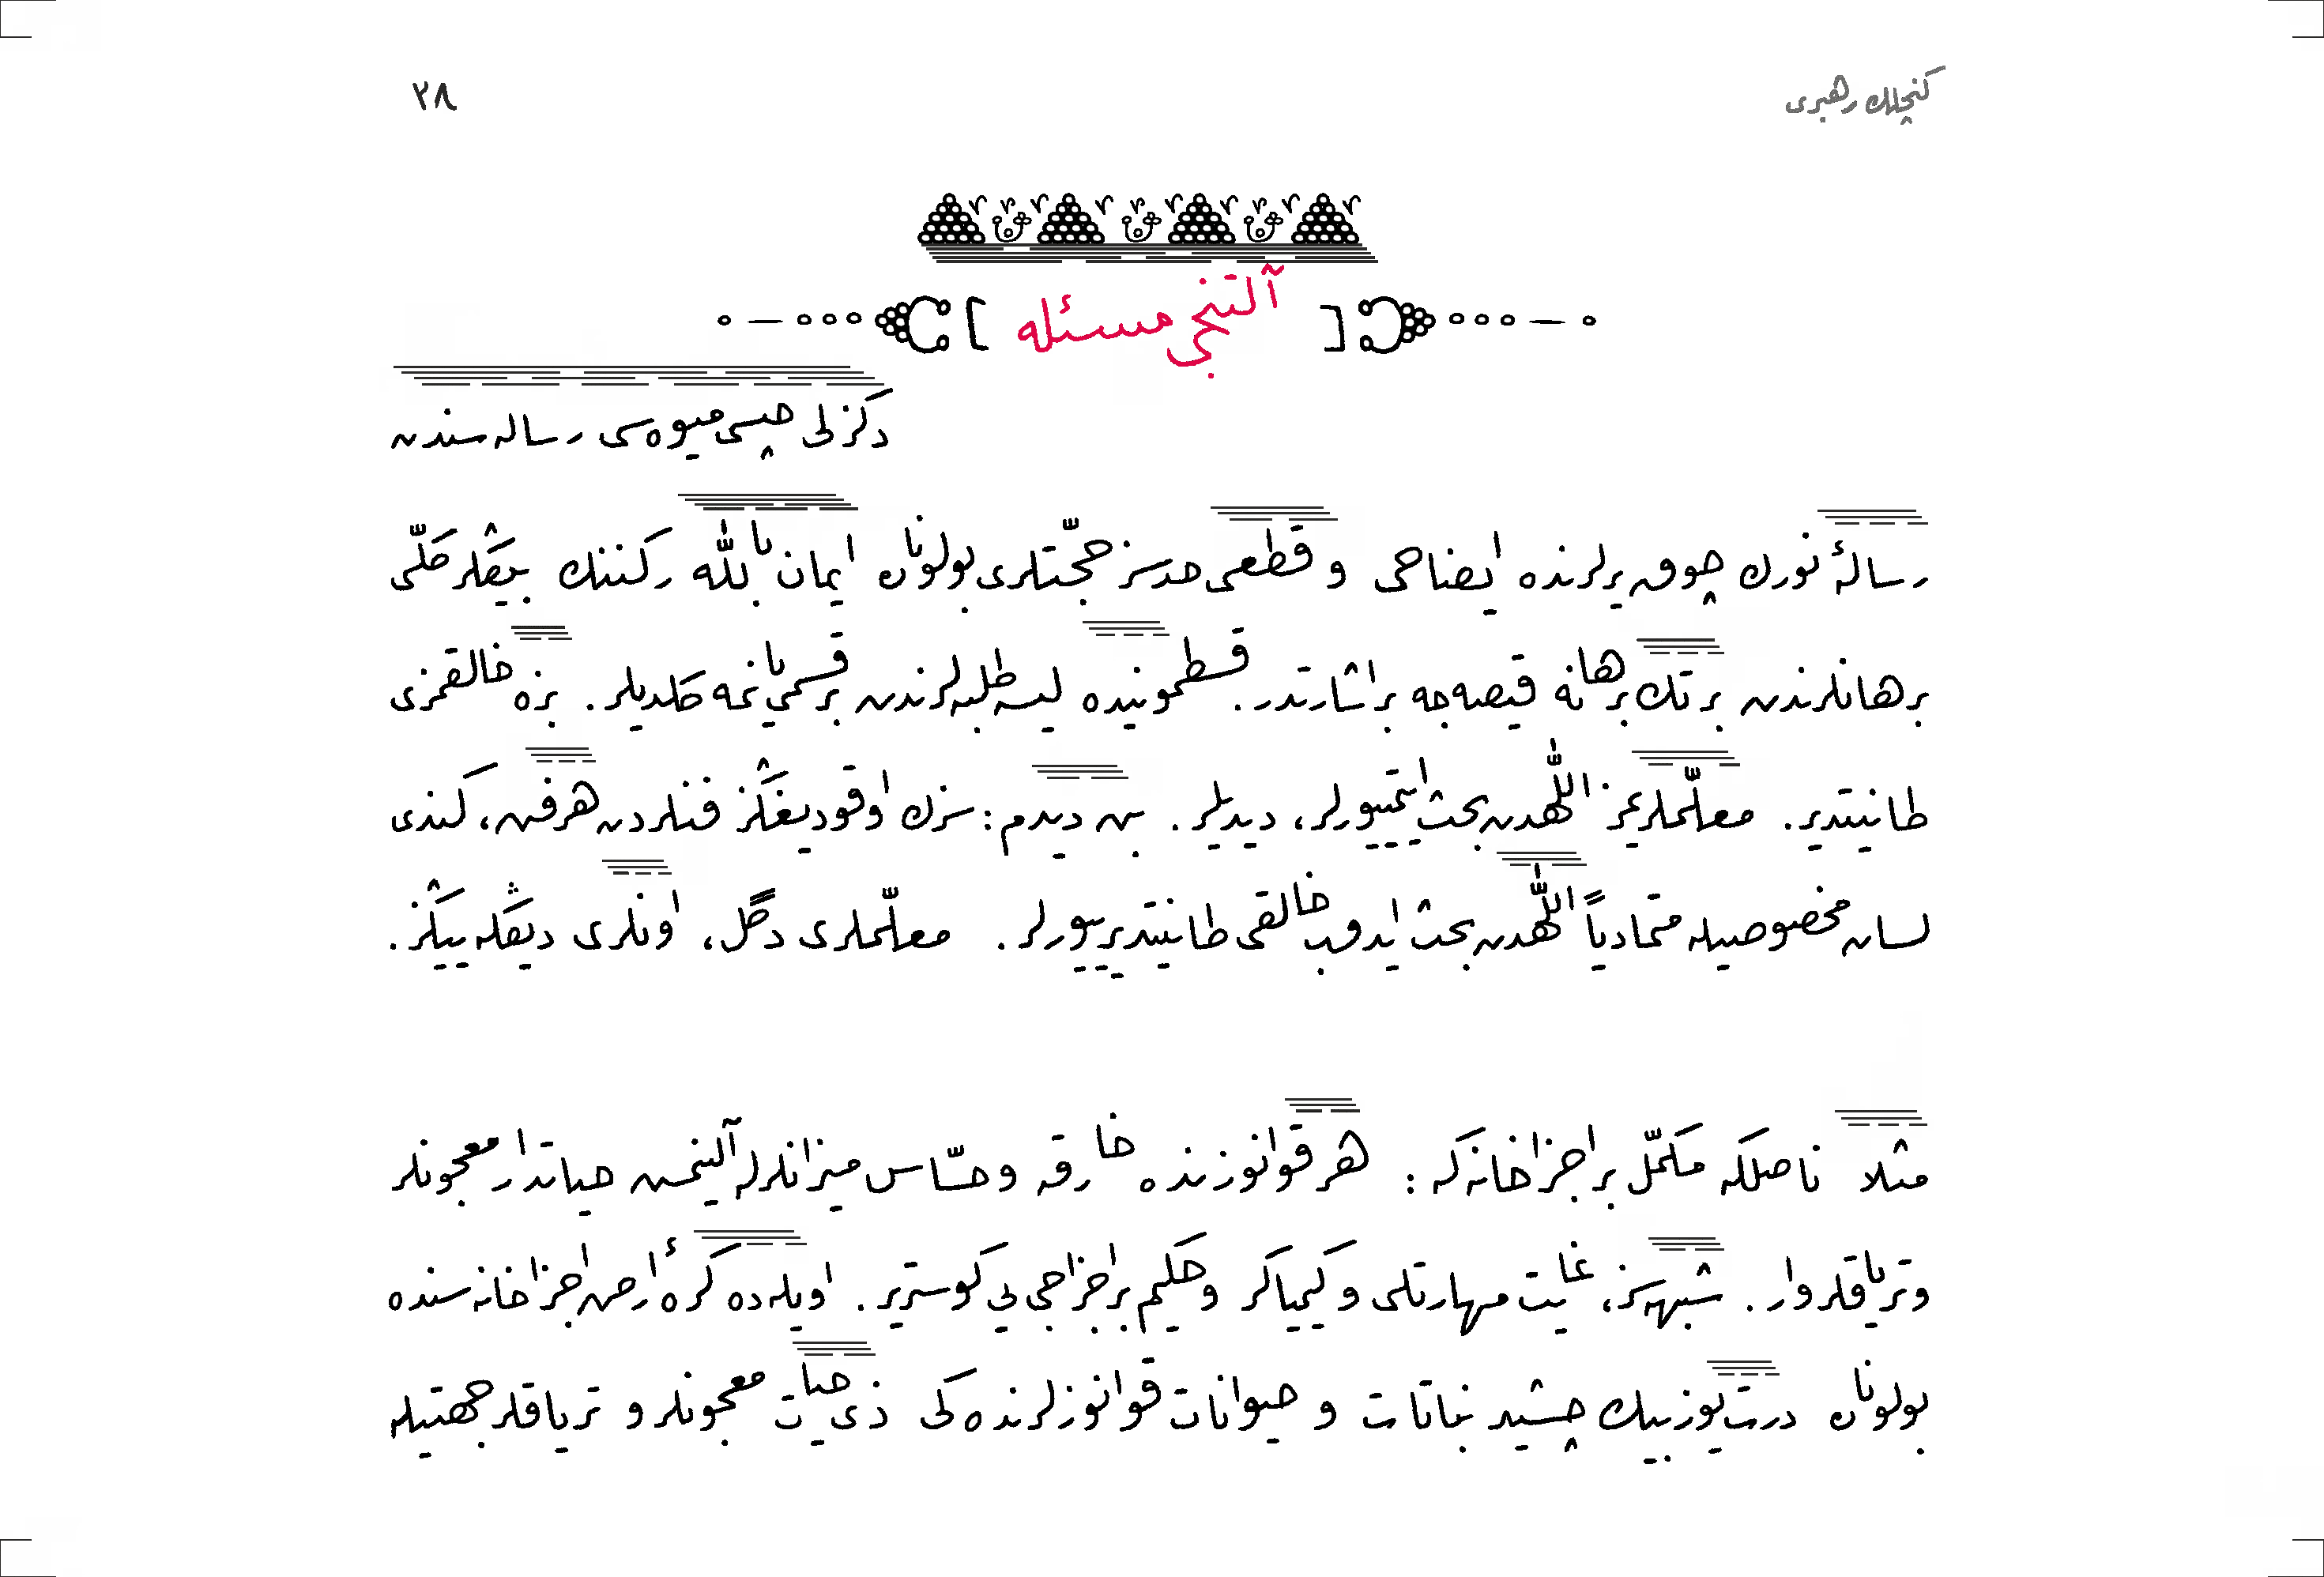 كنچلك رهبری
٢٨
[ آلتنجی مسئله ]
دكزلی حپسی میوه‌سی رساله‌سندن
رسالۀ نورك چوق یرلرنده ایضاحی و قطعی حدسز حجّتلری بولونان ایمان بالله ركننك بیڭلر كلّی
برهانلرندن بر تك برهانه قیصه‌جه بر اشارتدر. قسطمونیده لیسه طلبه‌لرندن بر قسمی یانمه كلدیلر. بزه خالقمزی
طانیتدیر. معلّملریمز اللّهدن بحث ایتمیورلر، دیدیلر. بن دیدم: سزك اوقودیغڭز فنلردن هر فن، كندی
لسان مخصوصیله متمادیاً اللّهدن بحث ایدوب خالقی طانیتدیرییورلر. معلّملری دگل، اونلری دیڭله‌ییڭز.
مثلا ناصلكه مكمّل بر اجزاخانه كه : هر قوانوزنده خارقه و حسّاس میزانلرله آلینمش حیاتدار معجونلر
و تریاقلر وار. شبهه‌سز، غایت مهارتلی و كیمیاكر و حكیم بر اجزاجی‌یی كوستریر. اویله‌ده كرۀ ارض اجزاخانه‌سنده
بولونان درت یوز بیك چشید نباتات و حیوانات قوانوزلرنده‌كی ذی‌حیات معجونلر و تریاقلر جهتیله